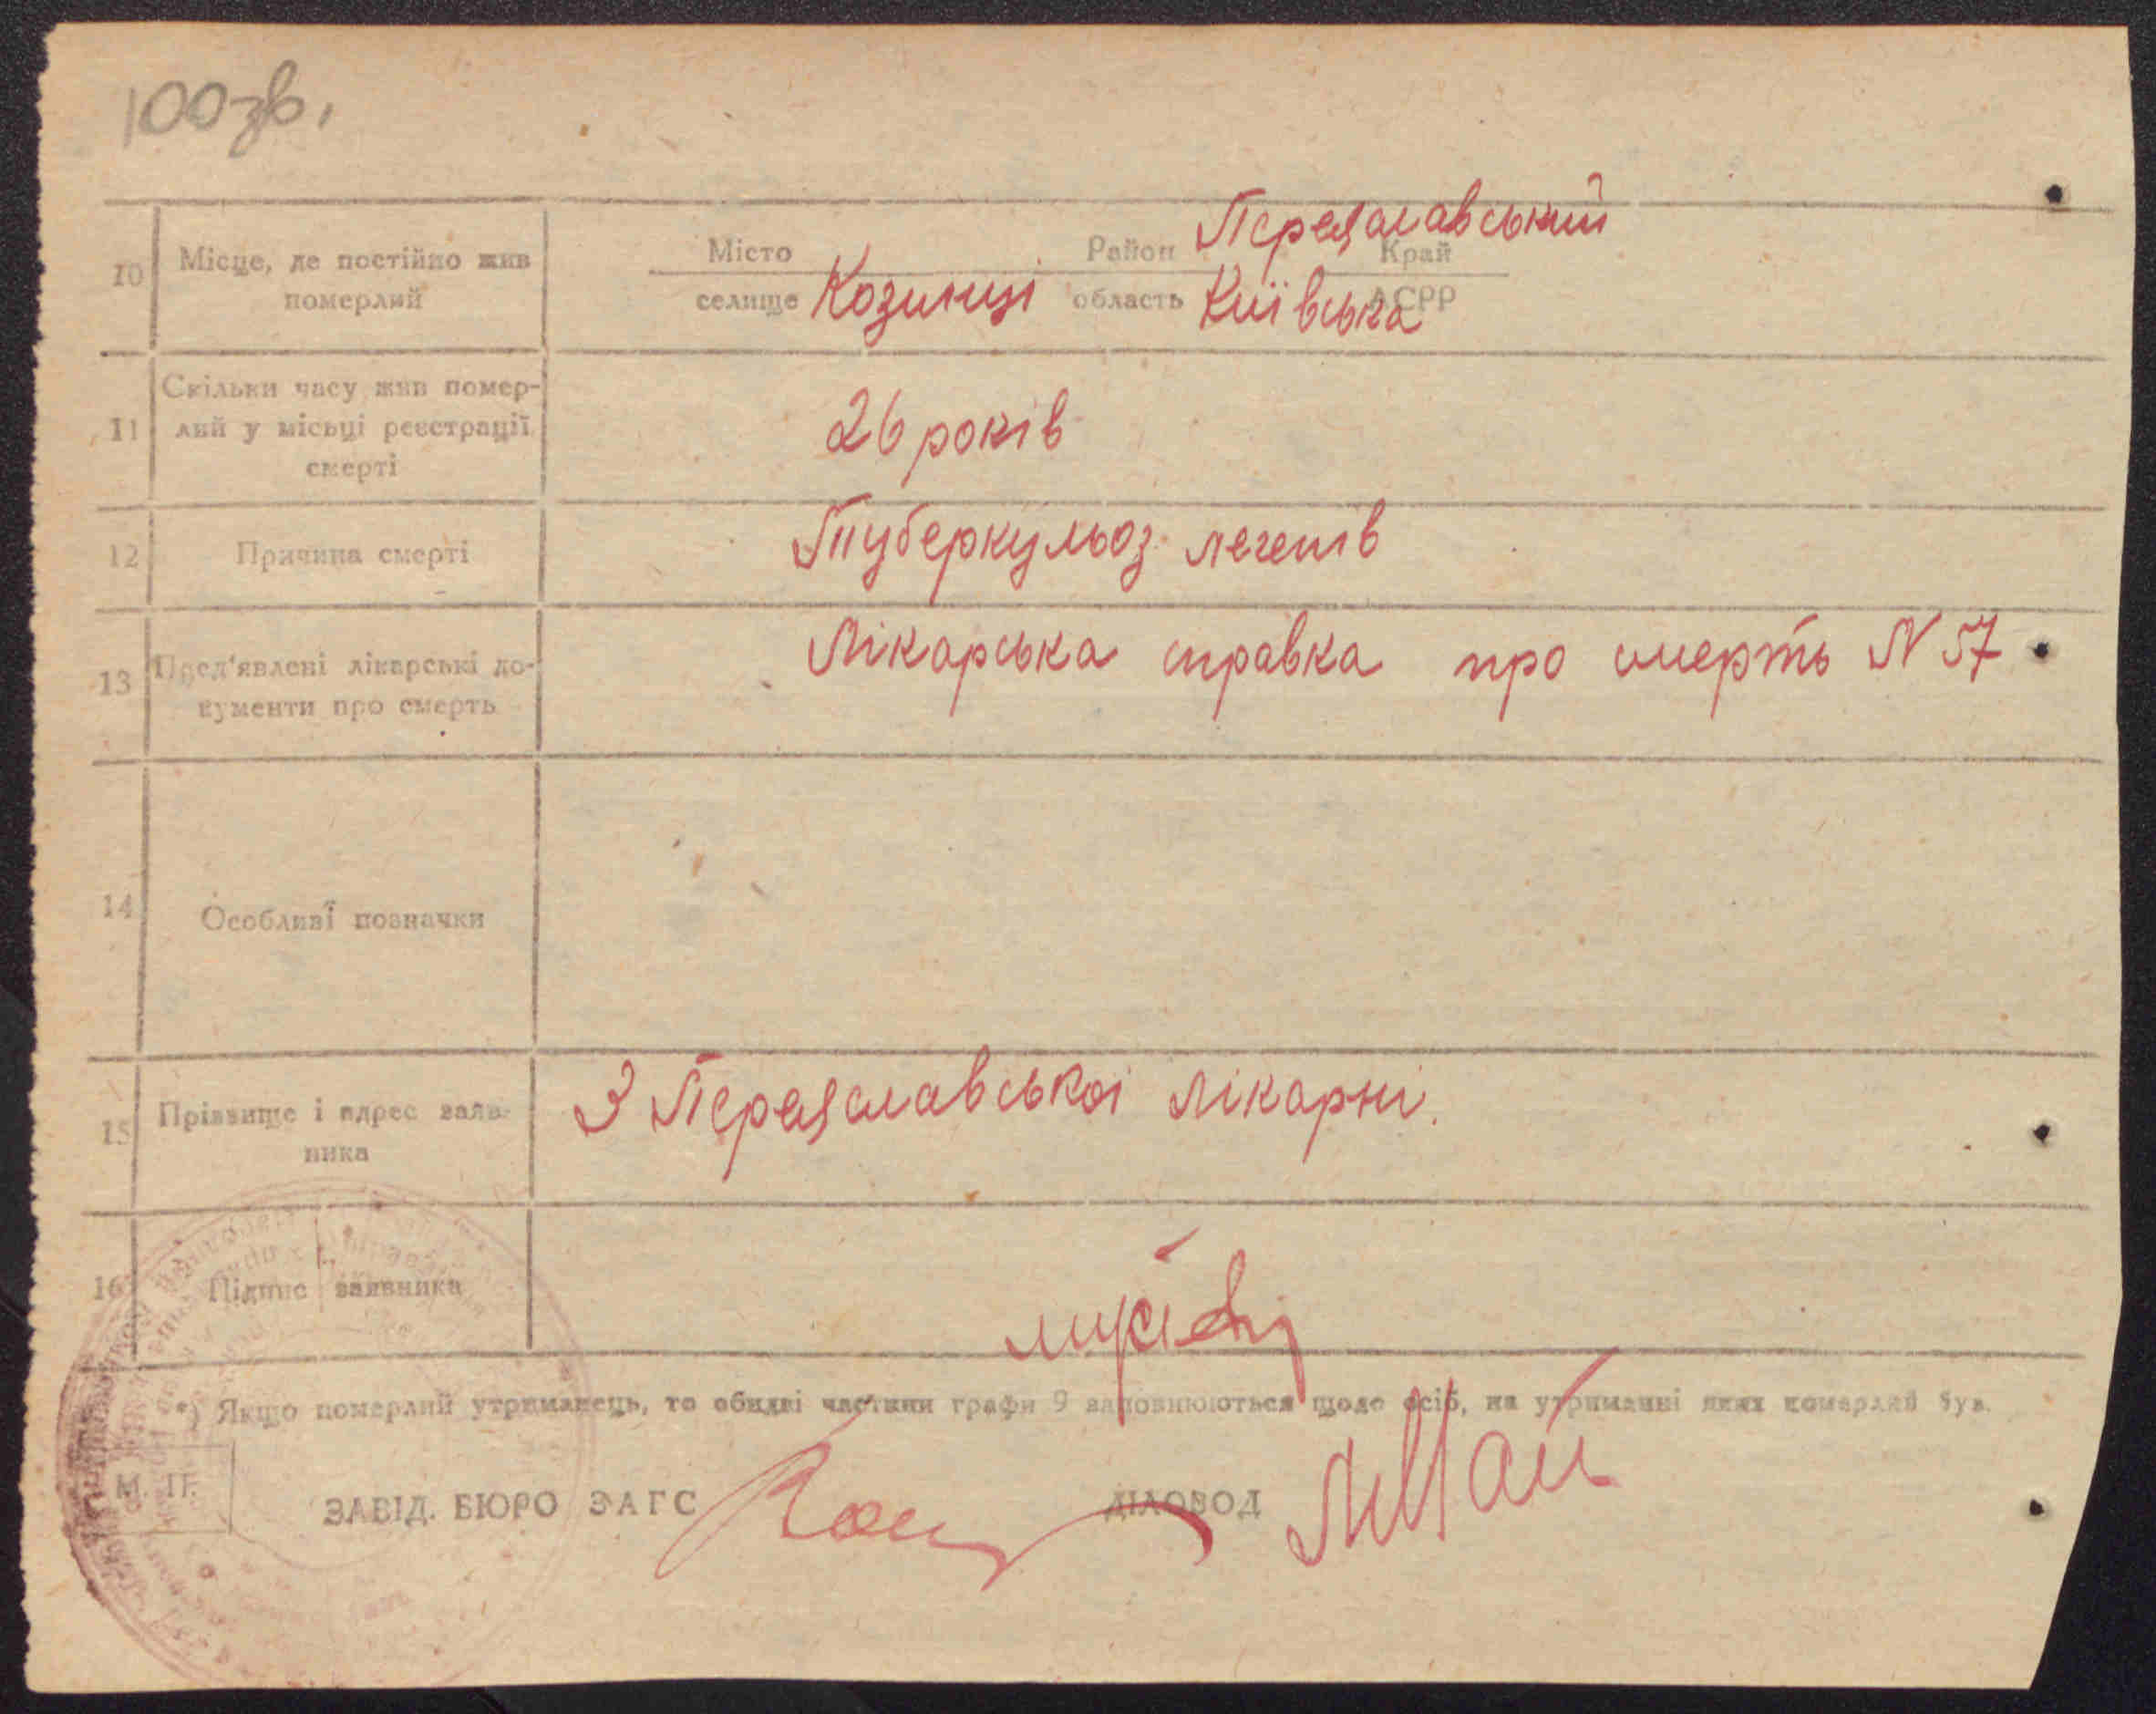 100зв.
Переяславський
10 Місце, де постійно жив Місто Район Край
померлий селище Козинці область Київська АСРР
Скільки часу жив помер-
11 лий у місьці реєстрації 26 років
смерті
12 Причина смерті Туберкульоз легенів
13 Пред'явлені лікарські до- Лікарська справка про смерть N 57
кументи про смерть
14 Особливі позначки
15 Прізвище і адрес заяв- З Переяславської лікарні.
ника
16 Підпис заявника
*) Якщо померлий утриманець, то обидві частини графи 9 заповнюються щодо осіб, на утриманні яких померлий був.
М. П.
ЗАВІД. БЮРО ЗАГС ДІЛОВОД